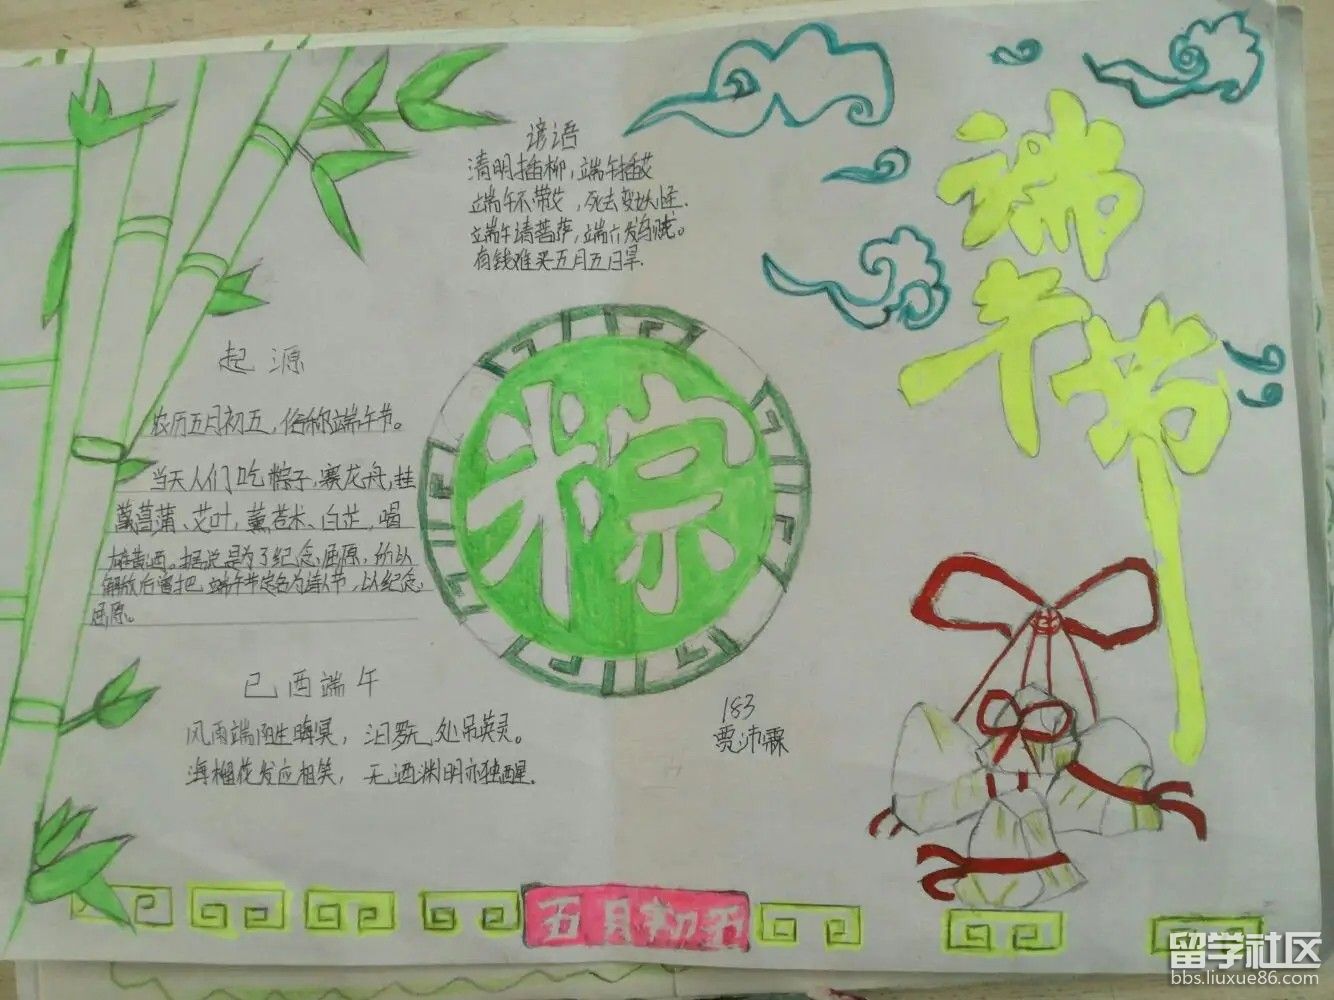 谚语
清明插柳，端午插艾
端午不带艾，死去变妖怪.
端午请菩萨，端六发乌贼。
有钱难买五月五日旱.
端午节
起源
农历五月初五，俗称端午节。
当天人们吃粽子，赛龙舟，挂
菖蒲、艾叶，薰苍术、白芷，喝
雄黄酒。据说是为了纪念屈原，所以
解放后曾把端午节定名为诗人节，以纪念
屈原。
粽
已酉端午
风雨端阳生晦冥，汨罗无处吊英灵。
海榴花发应相笑，无酒渊明亦独醒.
183
贾沛霖
五月初五
留学社区
bbs.liuxue86.com